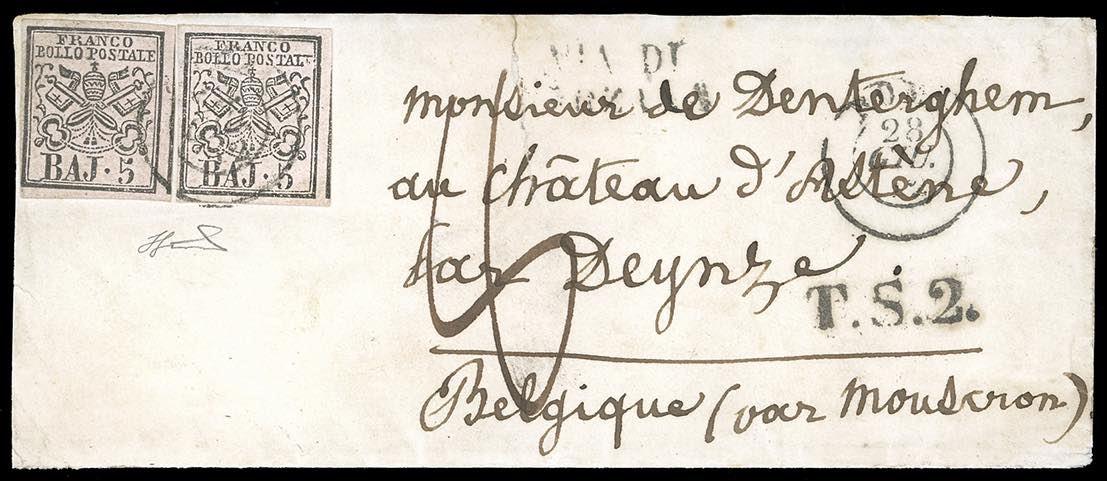 FRANCO
BOLLO POSTALE
BAJ. 5
FRANCO
BOLLO POSTAL
BAJ. 5
VIA DI
28
monsieur de Denterghem,
au château d'Astene,
par Deynze
T.S.2.
Belgique (par Mouscron).